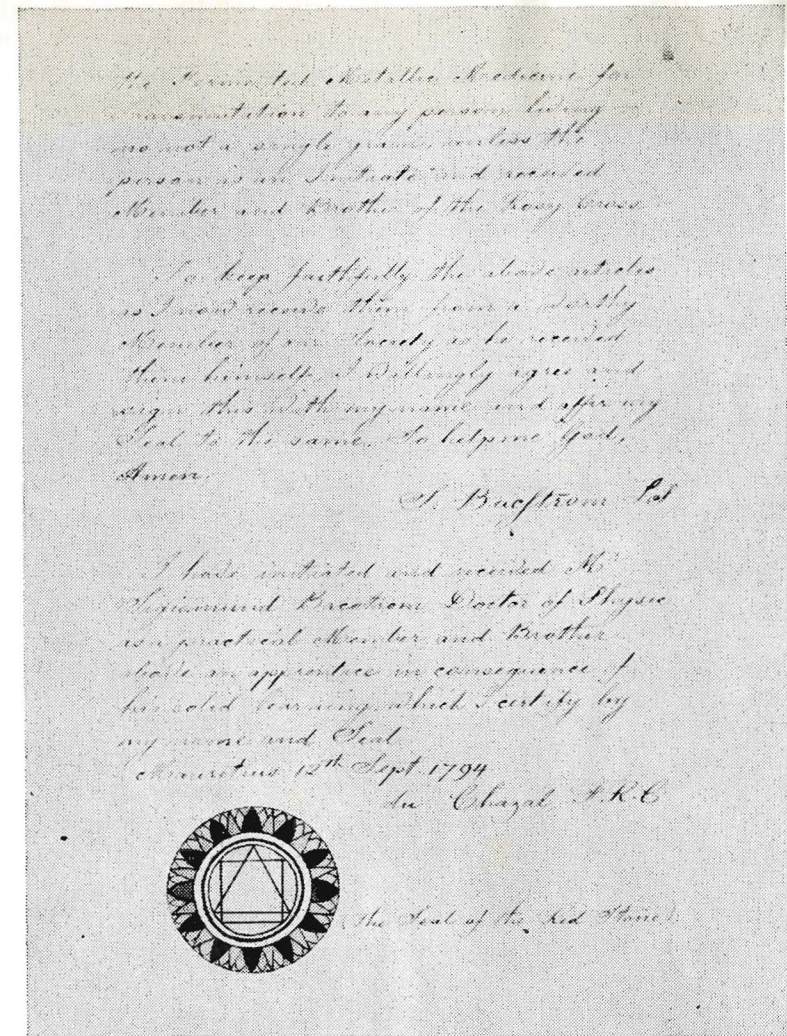 the Fermented Metallic Medicine for
Transmutation to any person living
no not a single grain, unless the
person is an Initiate and received
Member and Brother of the Rosy Cross
To keep faithfully the above articles
as I now receive them from a worthy
Member of our Society as he received
them himself, I willingly agree and
sign this with my name and affix my
Seal to the same. So help me God,
Amen.
S. Bacstrom
I have initiated and received Mr
Sigismund Bacstrom Doctor of Physic
as a practical Member and Brother
above an apprentice in consequence of
his solid learning, which I certify by
my name and Seal
Mauritius 12th Sept. 1794
du Chazal F.R.C
(the Seal of the Red Stone)